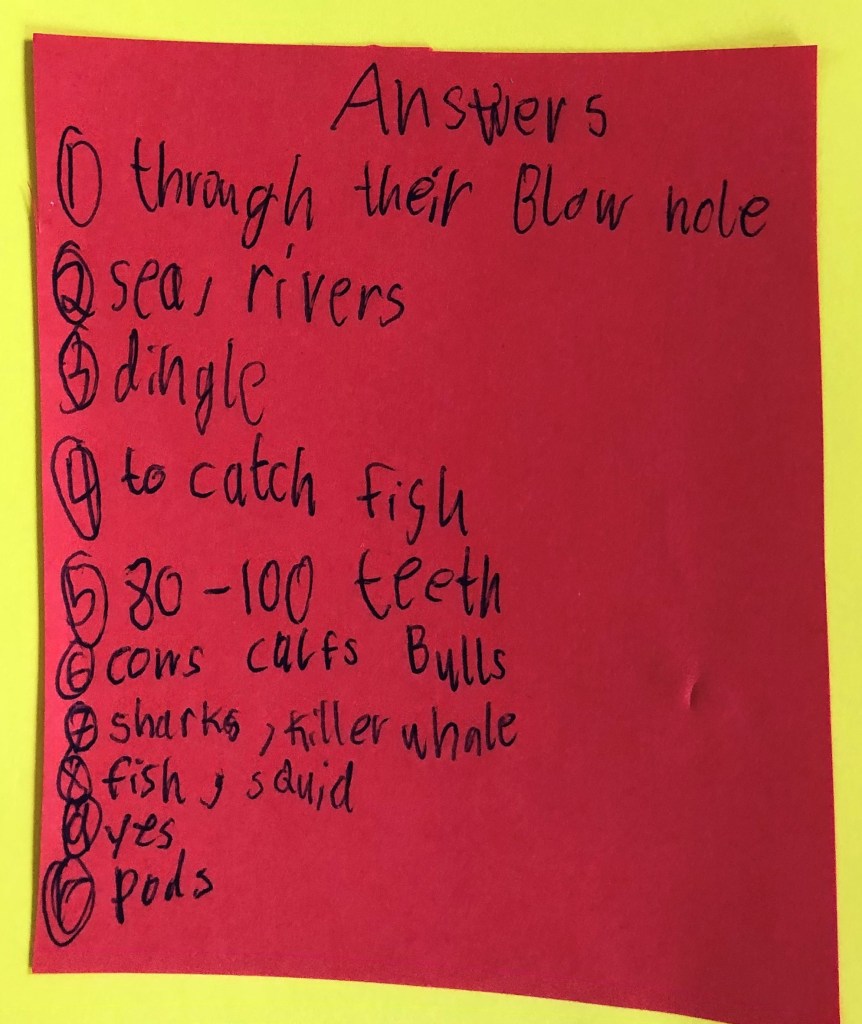 Answers
1 through their Blow hole
2 sea, rivers
3 dingle
4 to catch fish
5 80-100 teeth
6 cows calfs Bulls
7 sharks, killer whale
8 fish, squid
9 yes
10 pods